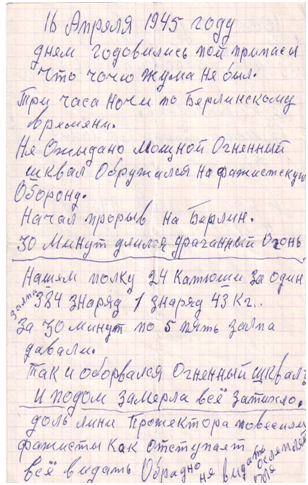 16 Апреля 1945 году
днем годовились пой припасы
что ночю жума не был.
Три часа Ночи по Берлинскому
времяни.
Не Ожыдано Мощной Огненный
шквал Обружался на фажистскую
Оборонд.
Начал прорыв на Берлин.
30 минут длился драганный Огонь
Нашем полку 24 Катюши за один
залп 384 знаряд 1 знаряд 43 Кг..
За 30 минут по 5 пять залпа
давали.
Так и оборвался Огненный шквал
И подом замерла всё затихло.
доль лини Прожектора повесили
фажисты как отступает
всё видать Обрадно не видать ослеплять